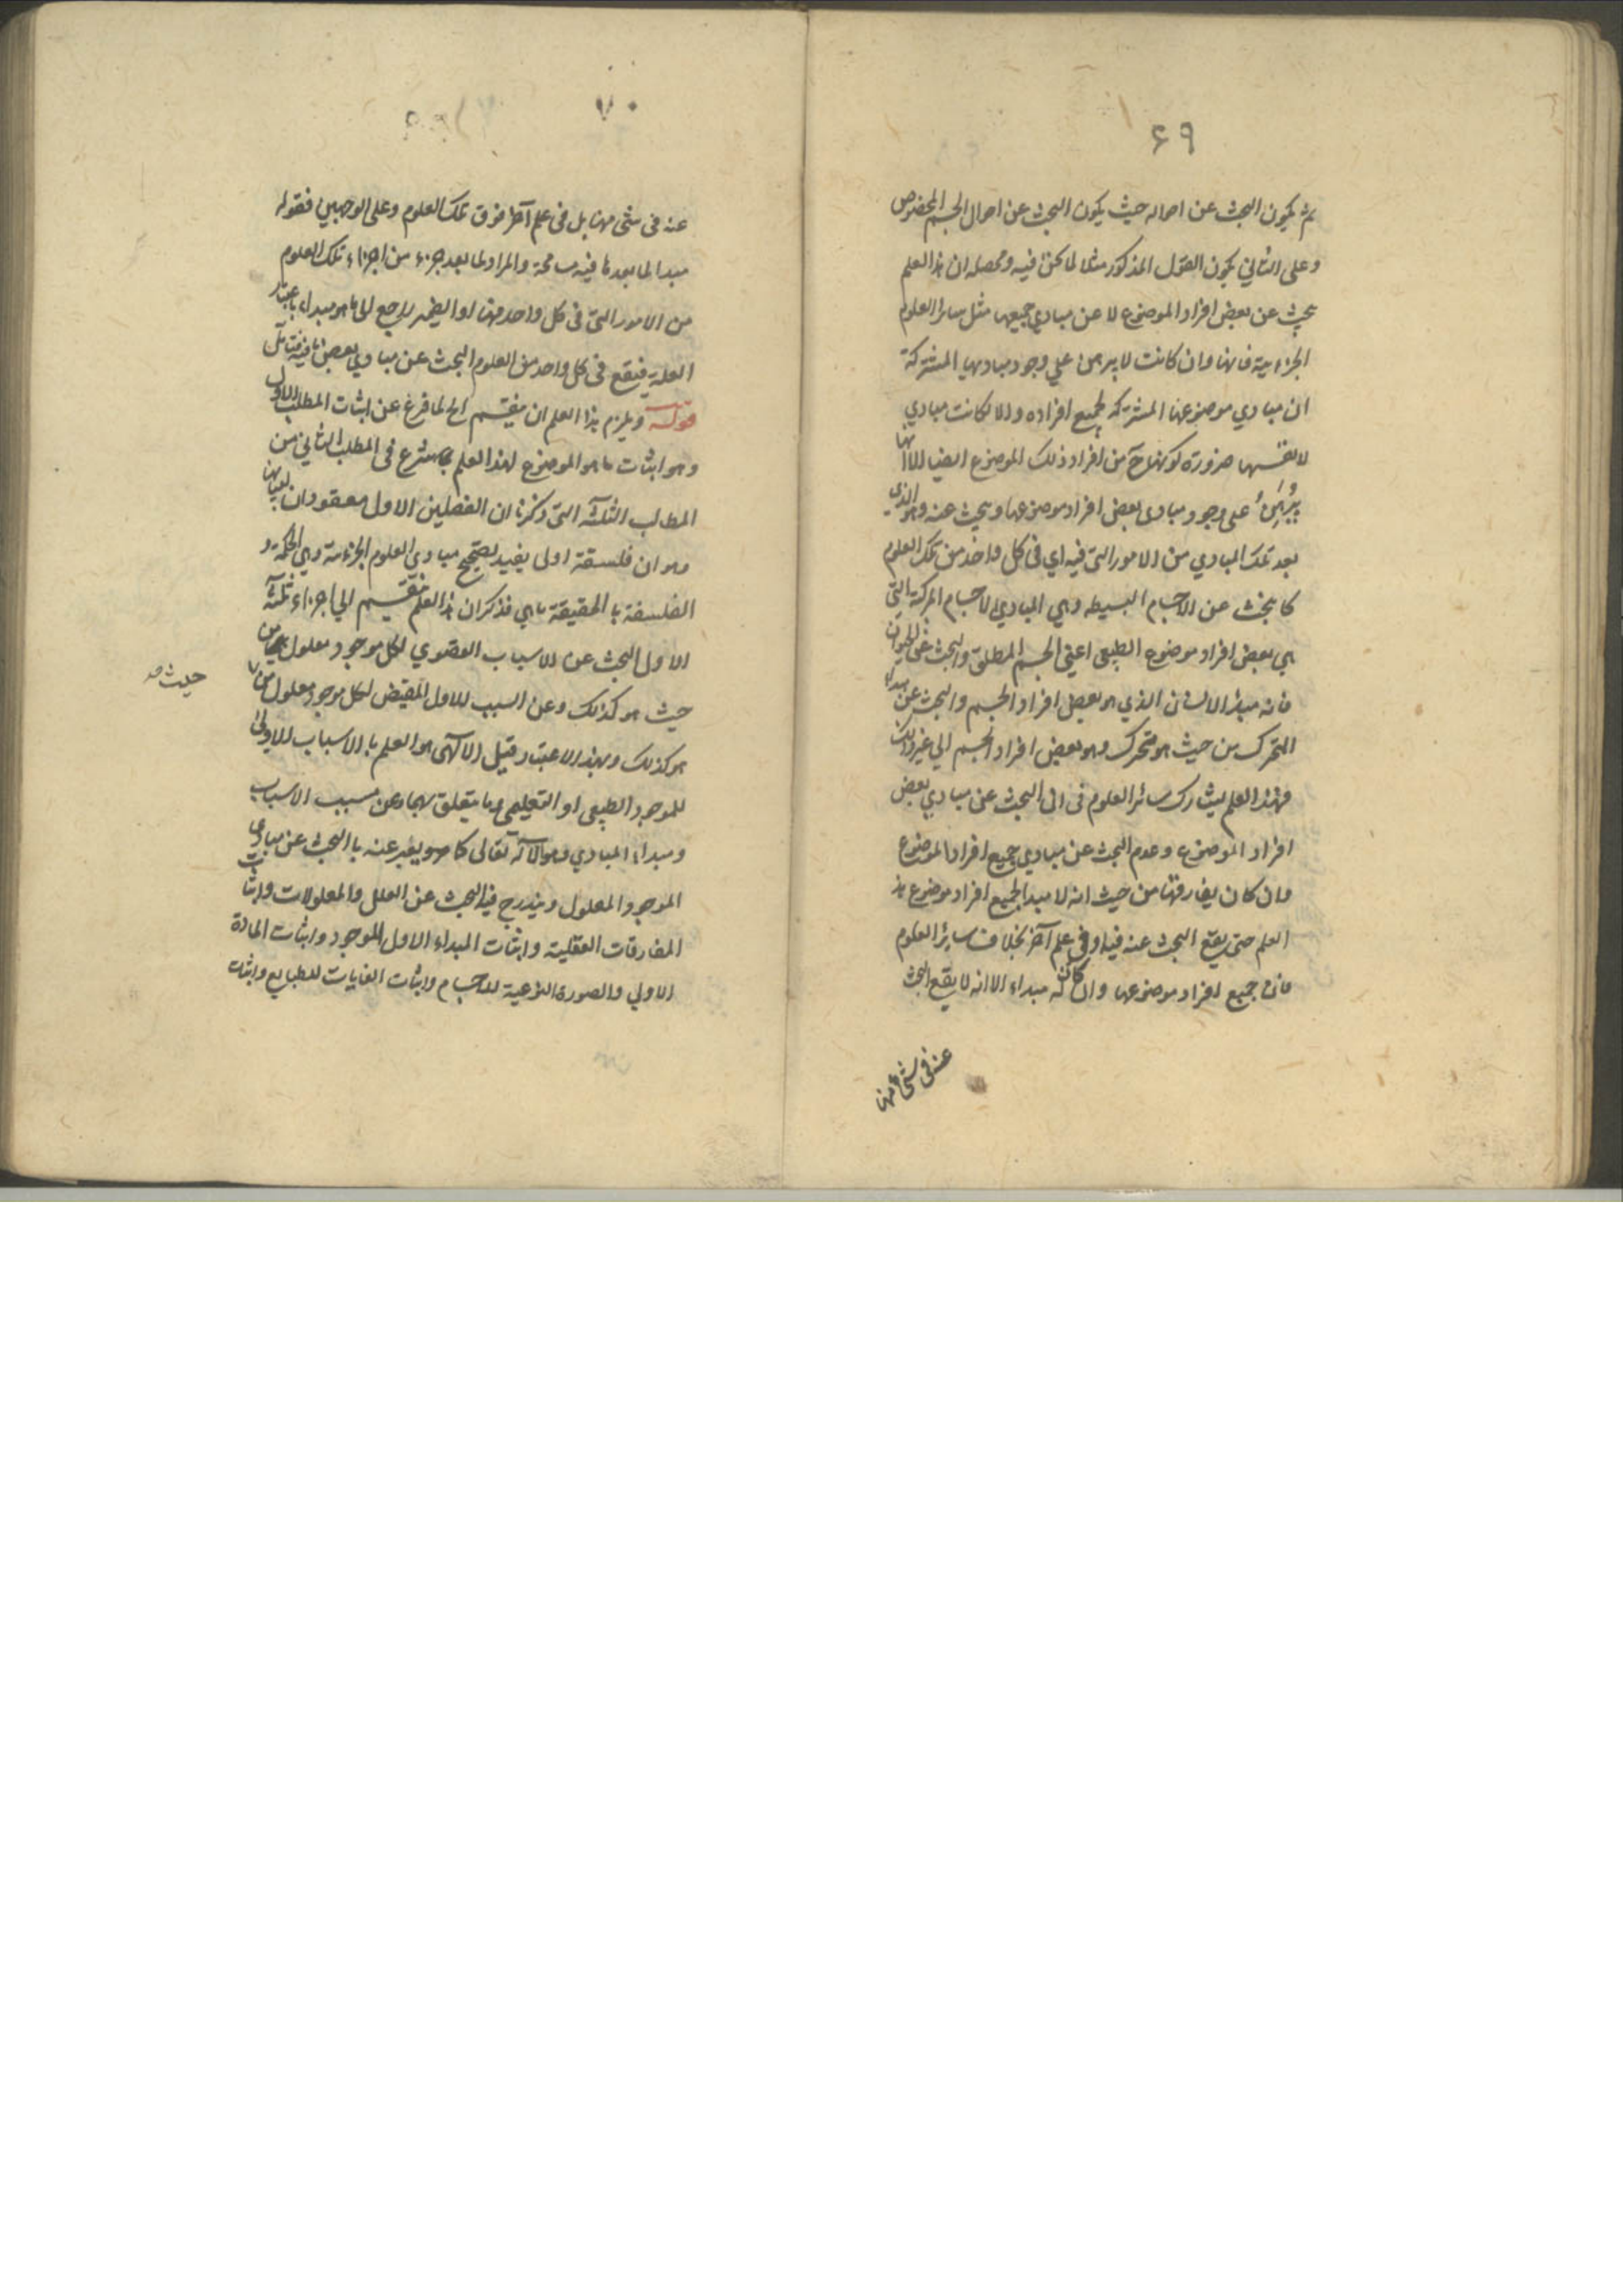 ۶۹
ثم يكون البحث عن احواله حيث يكون البحث عن احوال الجسم المخصوص
وعلى الثاني يكون القول المذكور مثلا لما كن فيه ومحصله ان هذا العلم
يبحث عن بعض افراد الموضوع لا عن مبادي جميعها مثل سائر العلوم
الجزءيية فانها وان كانت لا يبرهن علي وجود مباديها المشتركة
ان مبادي موضوعها المشتركه لجميع افراده والا لكانت مبادي
لانفسها ضرورة كونها ح من افراد ذلك الموضوع ايضا الا انها
يُبَرهِنُ على وجود مبادى بعض افراد موضوعها ويبحث عنه وهو الذي
بعد تلك المبادي من الامور التى فيه اي فى كل واحد من تلك العلوم
كما يبحث عن الاجسام البسيطه وهي المبادي للاجسام المركبة التى
هي بعض افراد موضوع الطبيعى اعنى الجسم المطلق والبحث عن الحيوان
فانه مبدأ الانسان الذي هو بعض افراد الجسم والبحث عن مبداء
المتحرك من حيث هو متحرك وهو بعض افراد الجسم الي غير ذلك
فهذا العلم يشارك سائر العلوم فى ان البحث عن مبادي بعض
افراد الموضوع وعدم البحث عن مبادي جميع افراد الموضوع
وان كان يفارقها من حيث انه لا مبدا لجميع افراد موضوع هذ
العلم حتى يقع البحث عنه فيه او في علم آخر بخلاف ساير العلوم
فان جميع افراد موضوعها وان كان له مبداء الا انه لا يقع البحث
عنه فى شئ منها
۷۰
عنه فى شئ منها بل فى علم آخر فوق تلك العلوم وعلى الوجهين فقوله
مبدا لما بعدها فيه مسامحة والمراد لما بعد جزء من اجزاء تلك العلوم
من الامور التى فى كل واحد منها او الضمير راجع الى ما هو مبداء باعتبار
العلة فيقع فى كل واحد من العلوم البحث عن مبادي بعض ما فيه فتامل
قوله ويلزم هذا العلم ان ينقسم الخ لما فرغ عن اثبات المطلب الاول
وهو اثبات ما هو الموضوع لهذا العلم شرع فى المطلب الثاني من
المطالب الثلثه التى ذكرنا ان الفصلين الاول معقودان لبيانها
وهو ان فلسفة اولى يفيد تصحيح مبادي العلوم الجزئية وهي الحكمة و
الفلسفة با الحقيقة ماهي فذكر ان هذا العلم ينقسم الي اجزاء ثلثة
الاول البحث عن الاسباب القصوي لكل موجود معلول من
حيث هو كذلك وعن السبب الاول المفيض لكل موجود معلول من
حيث صح
هو كذلك وبهذا الاعتبار قيل الالهى هو العلم با الاسباب الاولى
للموجود الطبيعى او التعليمى وما يتعلق بهما وعن مسبب الاسباب
ومبداء المبادي وهو الاله تعالى كما مر ويعبر عنه با البحث عن مبادي
الموجود المعلول ويندرج فيه البحث عن العلل والمعلولات واثبات
المفارقات العقلية واثبات المبداء الاول للموجود واثبات المادة
الاولي والصورة النوعية للاجسام واثبات الغايات للطبايع واثبات